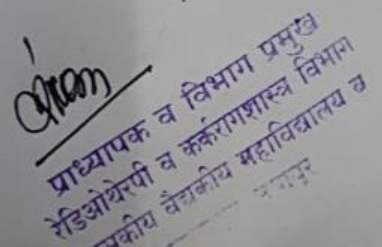 प्राध्यापक व विभाग प्रमुख
रेडिओथेरपी व कर्करोगशास्त्र विभाग
वैद्यकीय महाविद्यालय व